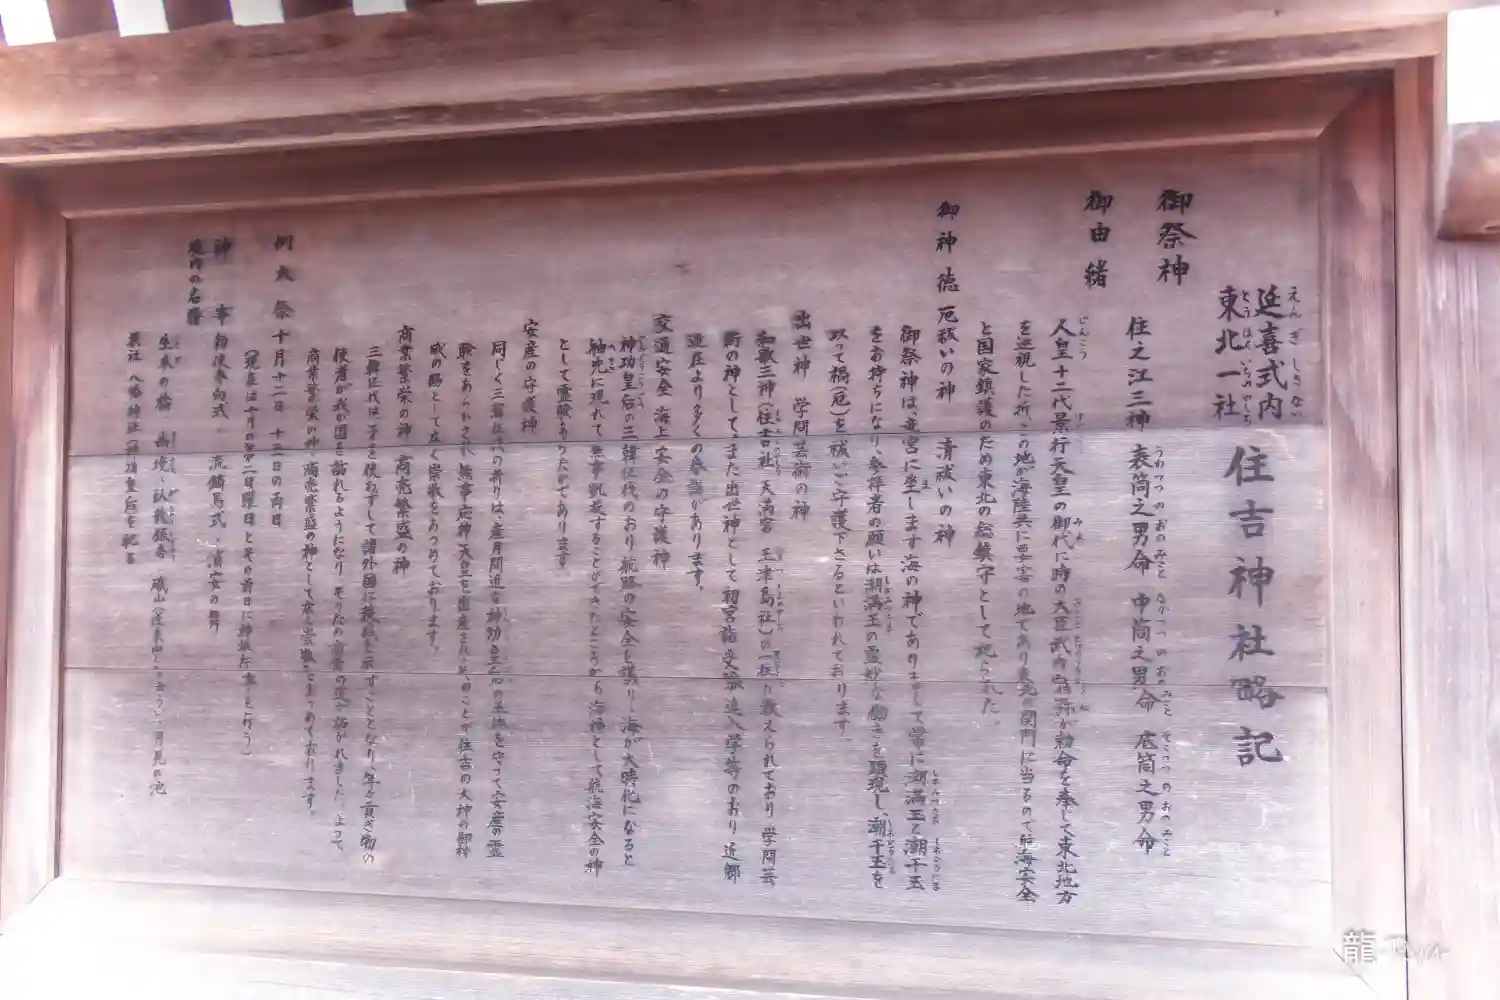 延喜式内
えんぎしきない
東北一社
とうほくいちのやしろ
住吉神社略記
御祭神
住之江三神 表筒之男命 中筒之男命 底筒之男命
うわつつのおのみこと なかつつのおのみこと そこつつのおのみこと
御由緒
人皇十二代景行天皇の御代に時の大臣武内宿弥が勅命を奉じて東北地方
を巡視した折、この地が海陸共に要害の地であり東北の関門に当るので航海安全
と国家鎮護のため東北の総鎮守として祀られた。
御神徳
厄祓いの神 清祓いの神
御祭神は、竜宮に坐します海の神でありまして常に潮満玉と潮干玉
をお持ちになり、参拝者の願いは潮満玉の霊妙な働きを顕現し、潮干玉を
以って禍(厄)を祓いご守護下さるといわれております。
出世神 学問芸術の神
和歌三神(住吉社 天満宮 玉津島社)の一柱に数えられており 学問芸
術の神として、また出世神として初宮詣 受験 進入学等のおり、近郷
近在より多くの参詣があります。
交通安全 海上安全の守護神
神功皇后の三韓征伐のおり 航路の安全を護り、海が大時化になると
舳先に現れて無事凱旋することができたところから 海神として航海安全の神
として霊験ありたかであります
安産の守護神
同じく三韓征伐の折りは、産月間近な神功皇后の基地を守って安産の霊
験をあらわされ 無事応神天皇を出産され、このことが住吉の大神の御神
威の賜として広く崇敬をあつめております。
商業繁栄の神 商売繁盛の神
三韓征伐は 矛を使わずして諸外国に稜威を示すこととなり、年々貢ぎ物の
使者が我が国を訪れるようになり そのため商業の道が拓かれました。よって
商業繁栄の神、商売繁盛の神として広く崇敬をあつめております。
例大祭 十月十二日 十三日の両日
(現在は十月の第二日曜日とその前日に神振行事を行う)
神事 勅使参向式 流鏑馬式 浦安の舞
境内の名勝
磯山
月見の池
末社 八幡神社(神功皇后を祀る
龍